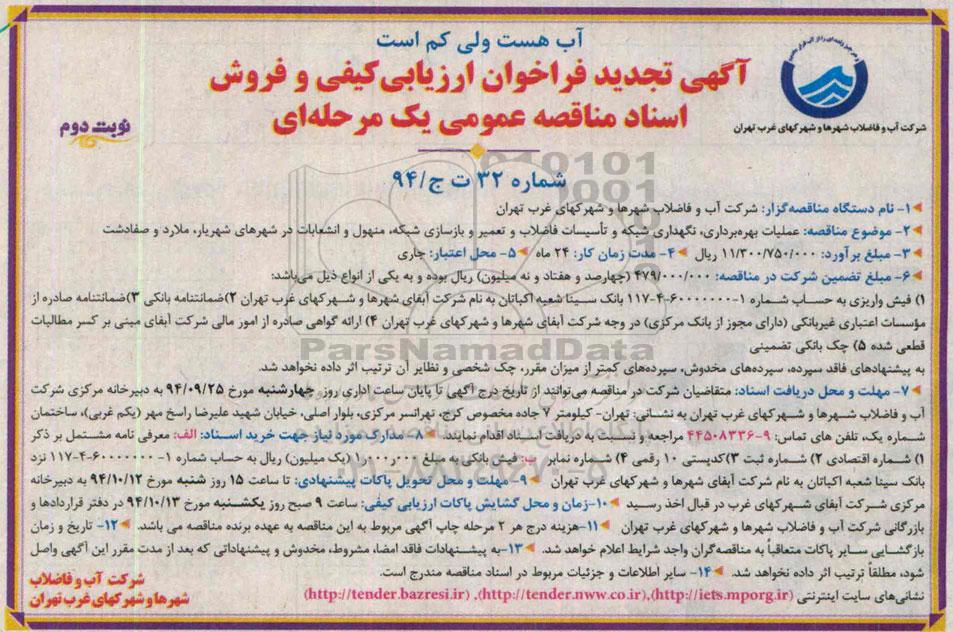 آب هست ولی کم است
آگهی تجدید فراخوان ارزیابی کیفی و فروش
اسناد مناقصه عمومی یک مرحله‌ای
نوبت دوم
شرکت آب و فاضلاب شهرها و شهرکهای غرب تهران
شماره ۳۲ ت ج/۹۴
۱- نام دستگاه مناقصه‌گزار: شرکت آب و فاضلاب شهرها و شهرکهای غرب تهران
۲- موضوع مناقصه: عملیات بهره‌برداری، نگهداری شبکه و تأسیسات فاضلاب و تعمیر و بازسازی شبکه، منهول و انشعابات در شهرهای شهریار، ملارد و صفادشت
۳- مبلغ برآورد: ۱۱/۳۰۰/۷۵۰/۰۰۰ ریال ۴- مدت زمان کار: ۲۴ ماه ۵- محل اعتبار: جاری
۶- مبلغ تضمین شرکت در مناقصه: ۴۷۹/۰۰۰/۰۰۰ (چهارصد و هفتاد و نه میلیون) ریال بوده و به یکی از انواع ذیل می‌باشد:
۱) فیش واریزی به حساب شماره ۱-۶۰۰۰۰۰۰۰-۴-۱۱۷ بانک سینا شعبه اکباتان به نام شرکت آبفای شهرها و شهرکهای غرب تهران ۲)ضمانتنامه بانکی ۳)ضمانتنامه صادره از
مؤسسات اعتباری غیربانکی (دارای مجوز از بانک مرکزی) در وجه شرکت آبفای شهرها و شهرکهای غرب تهران ۴) ارائه گواهی صادره از امور مالی شرکت آبفای مبنی بر کسر مطالبات
قطعی شده ۵) چک بانکی تضمینی
به پیشنهادهای فاقد سپرده، سپرده‌های مخدوش، سپرده‌های کمتر از میزان مقرر، چک شخصی و نظایر آن ترتیب اثر داده نخواهد شد.
۷- مهلت و محل دریافت اسناد: متقاضیان شرکت در مناقصه می‌توانند از تاریخ درج آگهی تا پایان ساعت اداری روز چهارشنبه مورخ ۹۴/۰۹/۲۵ به دبیرخانه مرکزی شرکت
آب و فاضلاب شهرها و شهرکهای غرب تهران به نشانی: تهران- کیلومتر ۷ جاده مخصوص کرج، تهرانسر مرکزی، بلوار اصلی، خیابان شهید علیرضا راسخ مهر (یکم غربی)، ساختمان
شماره یک، تلفن های تماس: ۹-۴۴۵۰۸۳۳۶ مراجعه و نسبت به دریافت اسناد اقدام نمایند. ۸- مدارک مورد نیاز جهت خرید اسناد: الف: معرفی نامه مشتمل بر ذکر
۱) شماره اقتصادی ۲) شماره ثبت ۳)کدپستی ۱۰ رقمی ۴) شماره نمابر ب: فیش بانکی به مبلغ ۱٫۰۰۰٫۰۰۰ (یک میلیون) ریال به حساب شماره ۱-۶۰۰۰۰۰۰۰-۴-۱۱۷ نزد
بانک سینا شعبه اکباتان به نام شرکت آبفای شهرها و شهرکهای غرب تهران ۹-مهلت و محل تحویل پاکات پیشنهادی: تا ساعت ۱۵ روز شنبه مورخ ۹۴/۱۰/۱۲ به دبیرخانه
مرکزی شرکت آبفای شهرکهای غرب در قبال اخذ رسید ۱۰-زمان و محل گشایش پاکات ارزیابی کیفی: ساعت ۹ صبح روز یکشنبه مورخ ۹۴/۱۰/۱۳ در دفتر قراردادها و
بازرگانی شرکت آب و فاضلاب شهرها و شهرکهای غرب تهران ۱۱-هزینه درج هر ۲ مرحله چاپ آگهی مربوط به این مناقصه به عهده برنده مناقصه می باشد. ۱۲- تاریخ و زمان
بازگشایی سایر پاکات متعاقباً به مناقصه‌گران واجد شرایط اعلام خواهد شد. ۱۳-به پیشنهادات فاقد امضا، مشروط، مخدوش و پیشنهاداتی که بعد از مدت مقرر این آگهی واصل
شود، مطلقاً ترتیب اثر داده نخواهد شد. ۱۴- سایر اطلاعات و جزئیات مربوط در اسناد مناقصه مندرج است.
نشانی‌های سایت اینترنتی (http://iets.mporg.ir)، (http://tender.nww.co.ir)، (http://tender.bazresi.ir)
شرکت آب و فاضلاب
شهرها و شهرکهای غرب تهران
ParsNamadData